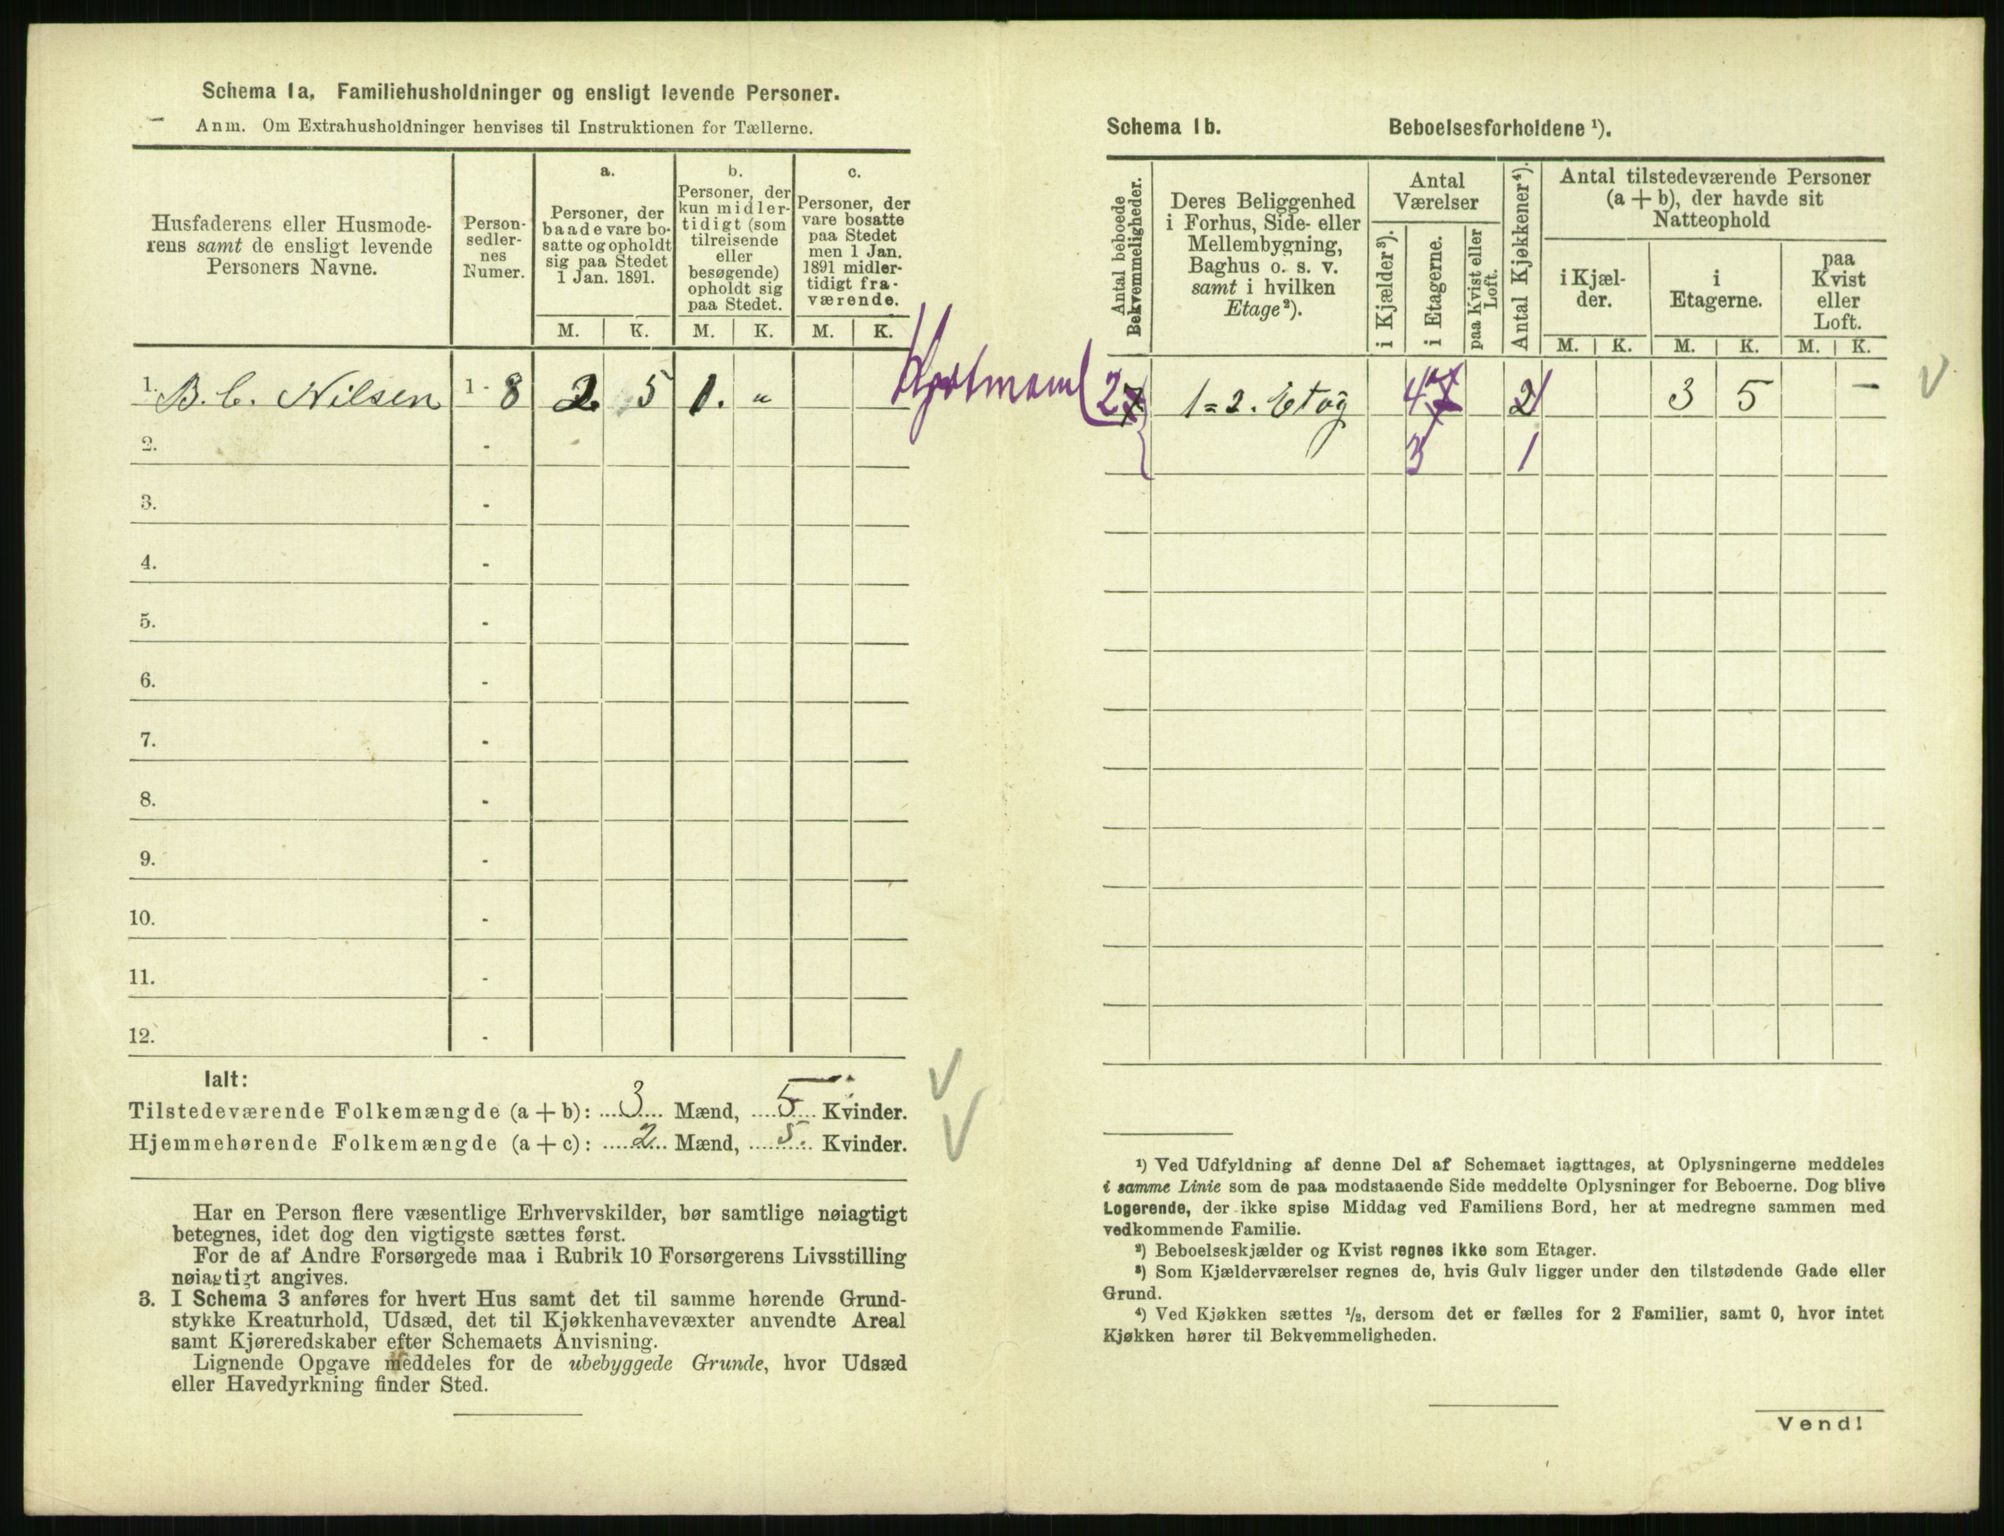 Schema 1a. Familiehusholdninger og ensligt levende Personer.
Anm. Om Extrahusholdninger henvises til Instruktionen for Tællerne.
Husfaderens eller Husmode-
rens samt de ensligt levende
Personers Navne.
Person-
sedler-
nes
Numer.
a.
Personer, der
baade vare bo-
satte og opholdt
sig paa Stedet
1 Jan. 1891.
b.
Personer, der
kun midler-
tidigt (som
tilreisende
eller
besøgende)
opholdt sig
paa Stedet.
c.
Personer, der
vare bosatte
paa Stedet
men 1 Jan.
1891 midler-
tidigt fra-
værende.
M. K. M. K. M. K.
1. B. C. Nilsen 1 - 8 2 5 1. "
2. -
3. -
4. -
5. -
6. -
7. -
8. -
9. -
10. -
11. -
12. -
Ialt:
Tilstedeværende Folkemængde (a + b): 3 Mænd, 5 Kvinder.
Hjemmehørende Folkemængde (a + c): 2 Mænd, 5. Kvinder.
Har en Person flere væsentlige Erhvervskilder, bør samtlige nøiagtigt
betegnes, idet dog den vigtigste sættes først.
For de af Andre Forsørgede maa i Rubrik 10 Forsørgerens Livsstilling
nøiagtigt angives.
3. I Schema 3 anføres for hvert Hus samt det til samme hørende Grund-
stykke Kreaturhold, Udsæd, det til Kjøkkenhavevæxter anvendte Areal
samt Kjøreredskaber efter Schemaets Anvisning.
Lignende Opgave meddeles for de ubebyggede Grunde, hvor Udsæd
eller Havedyrkning finder Sted.
Schema 1b. Beboelsesforholdene ¹).
Antal beboede
Bekvemmeligheder.
Deres Beliggenhed
i Forhus, Side- eller
Mellembygning,
Baghus o. s. v.
samt i hvilken
Etage²).
Antal
Værelser
i Kjælder³).
i Etagerne.
paa Kvist eller
Loft.
Antal Kjøkkener⁴).
Antal tilstedeværende Personer
(a + b), der havde sit
Natteophold
i Kjæl-
der.
i
Etagerne.
paa
Kvist
eller
Loft.
M. K. M. K. M. K.
2 1 = 2. Etag 4 7 2 1 3 5 —
3 1
¹) Ved Udfyldning af denne Del af Schemaet iagttages, at Oplysningerne meddeles
i samme Linie som de paa modstaaende Side meddelte Oplysninger for Beboerne. Dog blive
Logerende, der ikke spise Middag ved Familiens Bord, her at medregne sammen med
vedkommende Familie.
²) Beboelseskjælder og Kvist regnes ikke som Etager.
³) Som Kjælderværelser regnes de, hvis Gulv ligger under den tilstødende Gade eller
Grund.
⁴) Ved Kjøkken sættes ½, dersom det er fælles for 2 Familier, samt 0, hvor intet
Kjøkken hører til Bekvemmeligheden.
Vend!